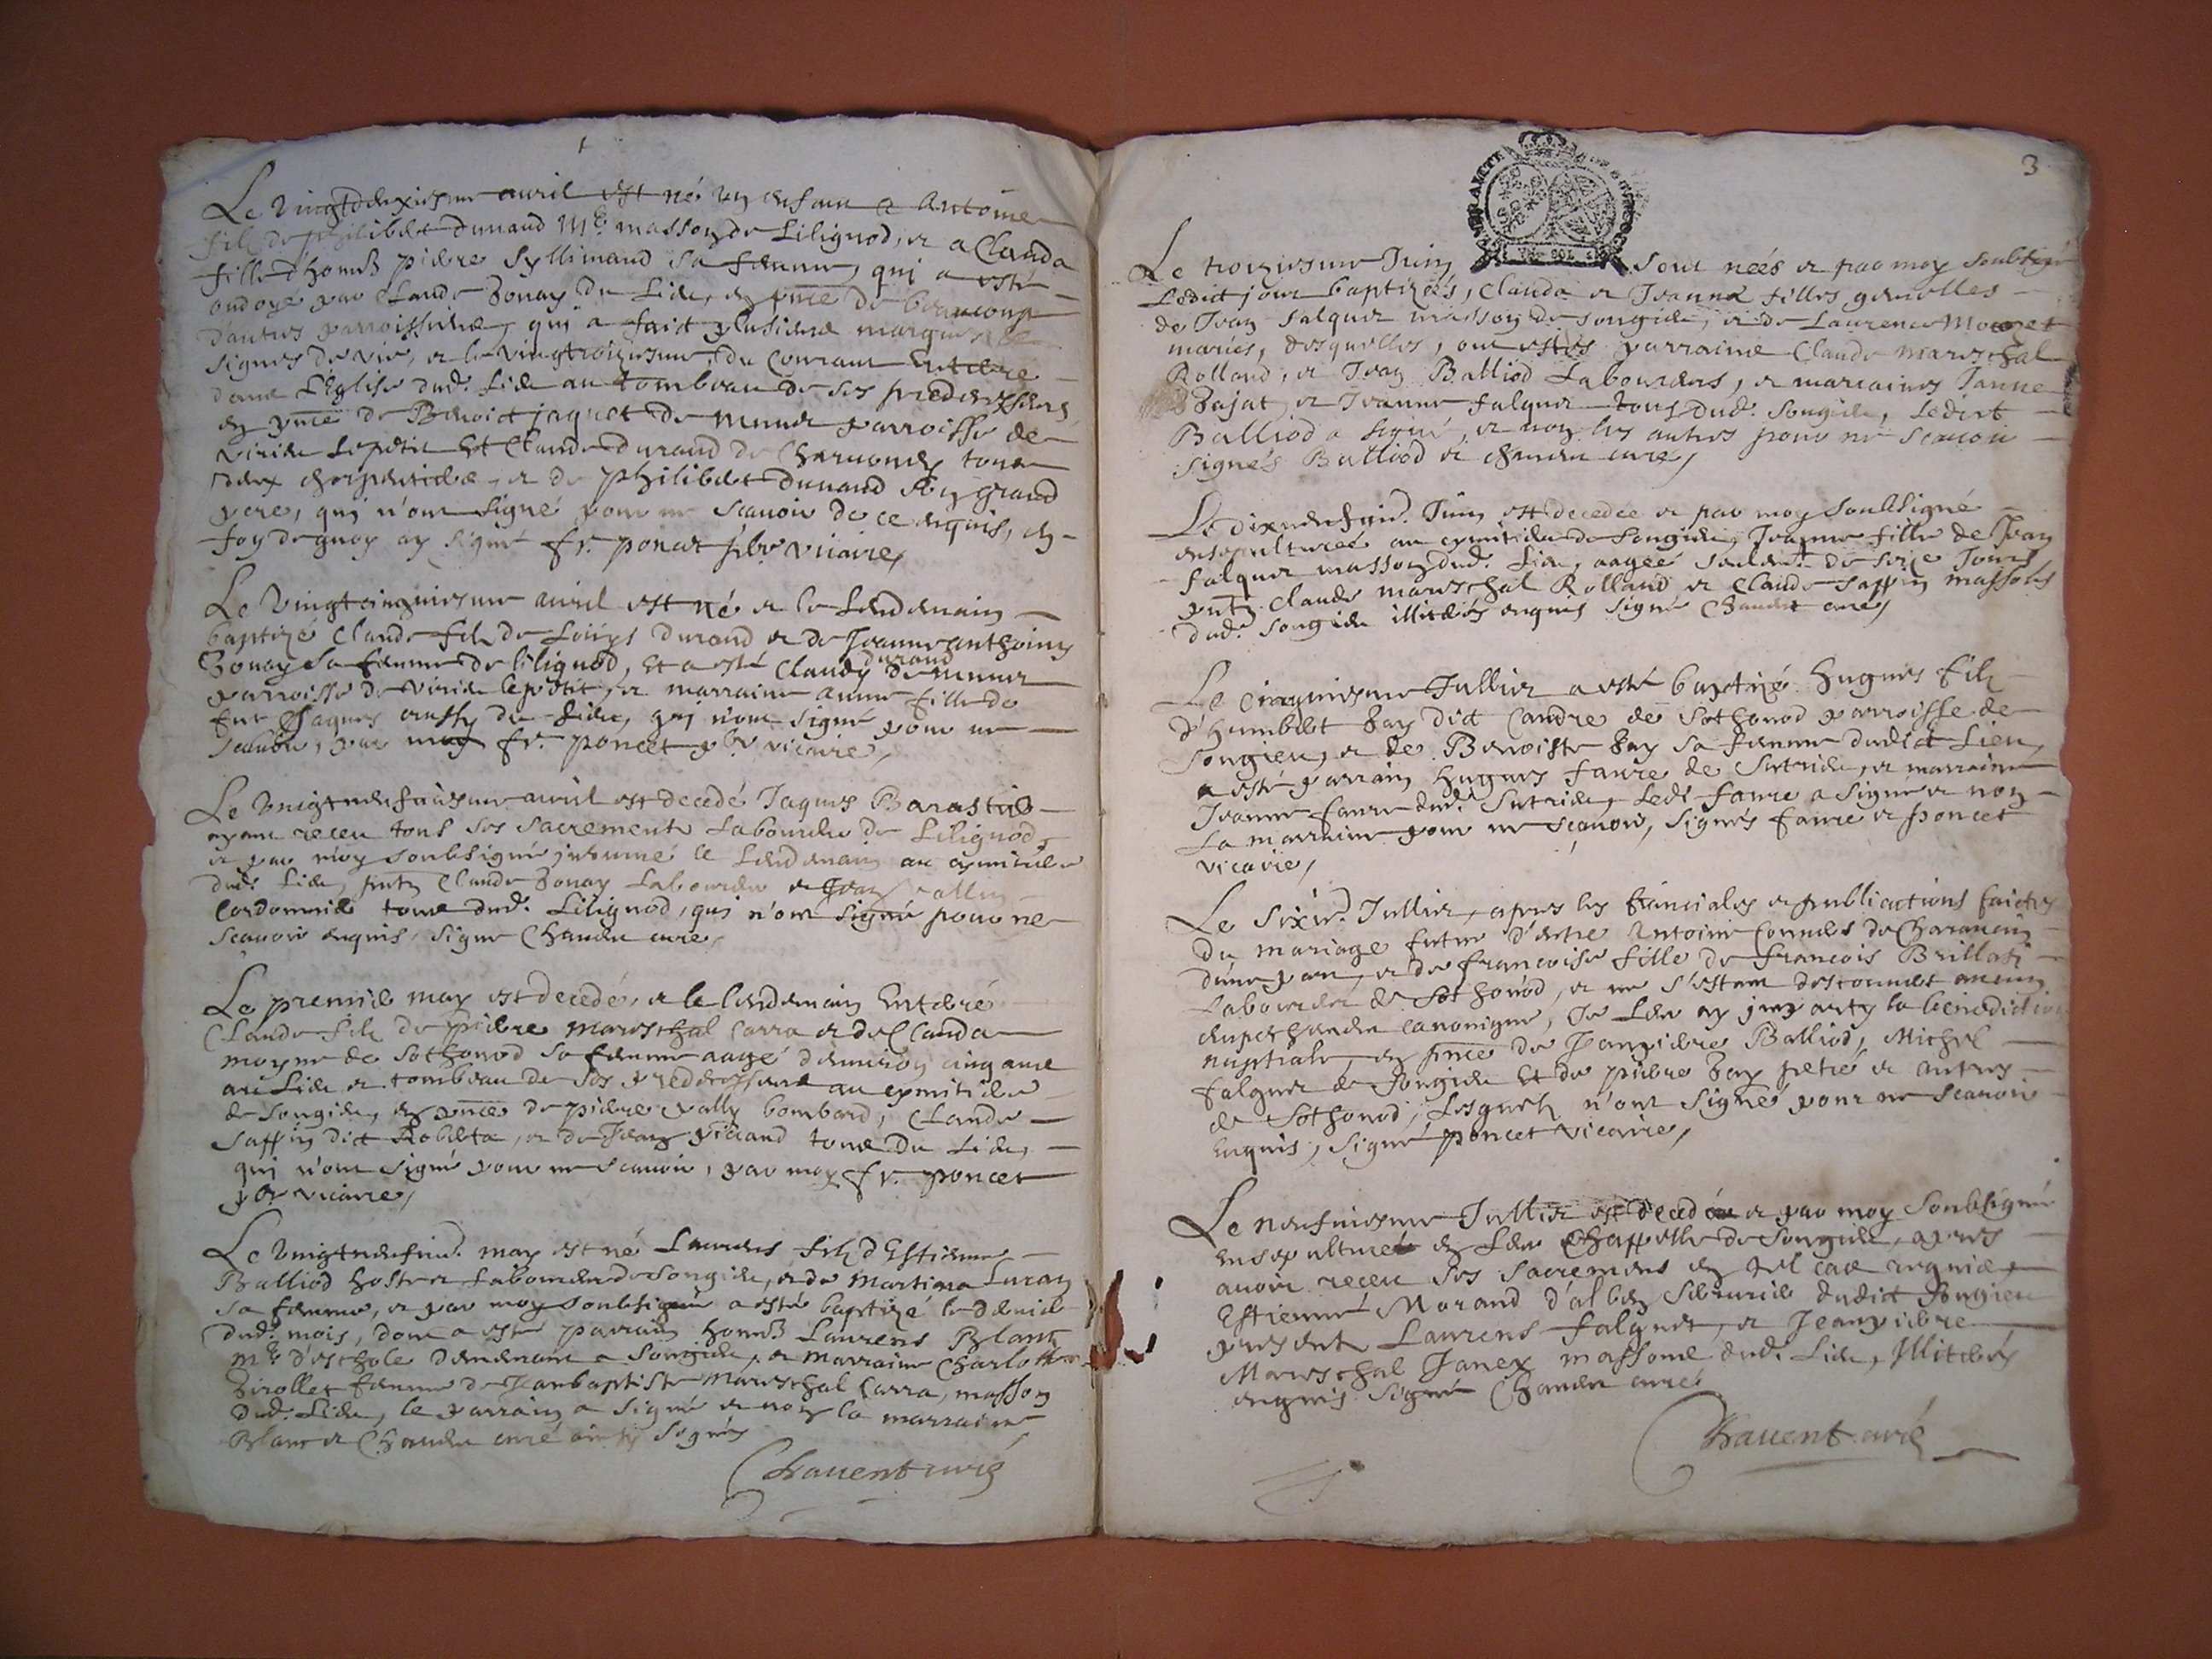 Le Vingtdeuxiesme avril est né un enfant a Antoine
filz de philibert dunaud Me masson de Lilignod, et a Clauda
fille d'honnb piérre Syllimand sa femme, qui a esté
ondoyé par Claude Bonay du Lieu, en pnce de beaucoup
d'autres parroissiens, qui a faict plusieurs marques et
signes de vie, et le vingttroiziesme du Courant Enterré
dans L'Eglise dud. Lieu au tombeau de ses predecesseurs
en pnce de Benoict jaquet de munet parroisse de
Virieu Lepetit Et Claude durand de Charvonex tous
deux charpentiers, et de philibert dunaud son grand
pere, qui n'ont signé pour ne scauoir de ce enquis, en
foy de quoy ay signé fr. poncet pbr vicaire,
Le Vingtcinquiesme auril est né et le Lendemain
baptizé Claude filz de Loüys durand et de Jeanne anthoine
Bonay sa femme de lilignod, Et a esté Claude durand de munet
parroisse de Virieu lepetit, et marraine anne fille de
feu Jaques du Lieu, qui n'ont signé pour ne
scauoir, par moy fr. poncet pbr vicaire,
Le Vingtneufuiesme auril est decedé Jaques
ayant receu tous ses sacrements Laboureur de Lilignod,
et par moy soubsigné inhumé le Lendemain au cymitiere
dud. Lieu, pntz Claude Bonay Laboureur et Jean
Cordonnier tous dud. Lilignod, qui n'ont signé pour ne
scauoir enquis, signé Chauent curé,
Le premier may est decedé, et le lendemain Enterré
Claude filz de piérre mareschal Carra et de Clauda
moyne de Sothonod sa femme aagé d'enuiron cinq ans
au Lieu et tombeau de ses predecesseurs au cymitiere
de Songieu, en pnce de piérre vally bombard, Claude
Saffin dict Roberta, et de Jean tous du Lieu,
qui n'ont signé pour ne scauoir, par moy fr. poncet
pbr vicaire,
Le Vingtneufuie. may est né Laurens filz d'Estienne
Balliod hoste et Laboureur de Songieu, et de Martina
sa femme, et par moy soubsigné a esté baptizé le dernier
dud. mois, dont a esté parrain honnb Laurens Blanc
Me d'eschole demeurant a Songieu, et marraine Charlotte
Birollet femme de Jeanbaptiste Mareschal Carra, masson
dud. Lieu, le parrain a signé et non la marraine
Blanc et Chauent curé ainsy signés
Chauent curé
3
Le troiziesme Juin sont nées et par moy soubsigné
Ledict jour baptizées, Clauda et Jeanna filles gemelles
de Jean falquet masson de songieu, et de Laurence
mariés, desquelles, ont estés parrains Claude mareschal
Rolland, et Jean Balliod Laboureurs, et marraines Janne
Bajat et Jeanne falquet tous dud. Songieu, Ledict
Balliod a signé, et non les autres pour ne scauoir
signés Balliod et Chauent curé,
Le dixneufuie. Juin est decedée et par moy soubsigné
ensepulturée au cymitiere de Songieu, Jeanne fille de Jean
falquet masson dud. Lieu, aagée seulemt de seize Jours
pntz Claude mareschal Rolland et Claude Saffin massons
dud. Songieu illiterés enquis signé Chauent curé,
Le Cinquiesme Jullier a esté baptizé Hugues filz
d'Humbert Bay dict Candre de Sothonod parroisse de
Songieu, et de Benoiste Bay sa femme dudict Lieu,
a esté parrain Hugues faure de Sutrieu, et marraine
Jeanne faure dud. Sutrieu, Ledt faure a signé et non
La marraine pour ne scauoir, signés faure et poncet
vicaire,
Le Sixie. Jullier, apres les fiancialles et publications faictes
du mariage futur d'entre Antoine de Charancin
d'une part, et de francoise fille de francois Brillat
Laboureur de Sothonod, et ne s'estant descouuert aucun
empeschement canonique, Je Leur ay imparty la benediction
nuptiale, en pnce de Jeanpiérre Balliod, Michel
falquet de Songieu Et de piérre Bay petré et autres
de Sothonod, Lesquels n'ont signé pour ne scauoir
Enquis, signé poncet vicaire,
Le neufuiesme Jullier est decedé et par moy soubsigné
ensepulturé en Leur Chappelle de Songieu, apres
auoir receu ses sacremens en tel cas requis,
Estienne Morand d'alben dudict Songieu
presents Laurens falquet, et Jeanpiérre
Mareschal Janex massons dud. Lieu, Illiterés
enquis signé Chauent curé
Chauent curé